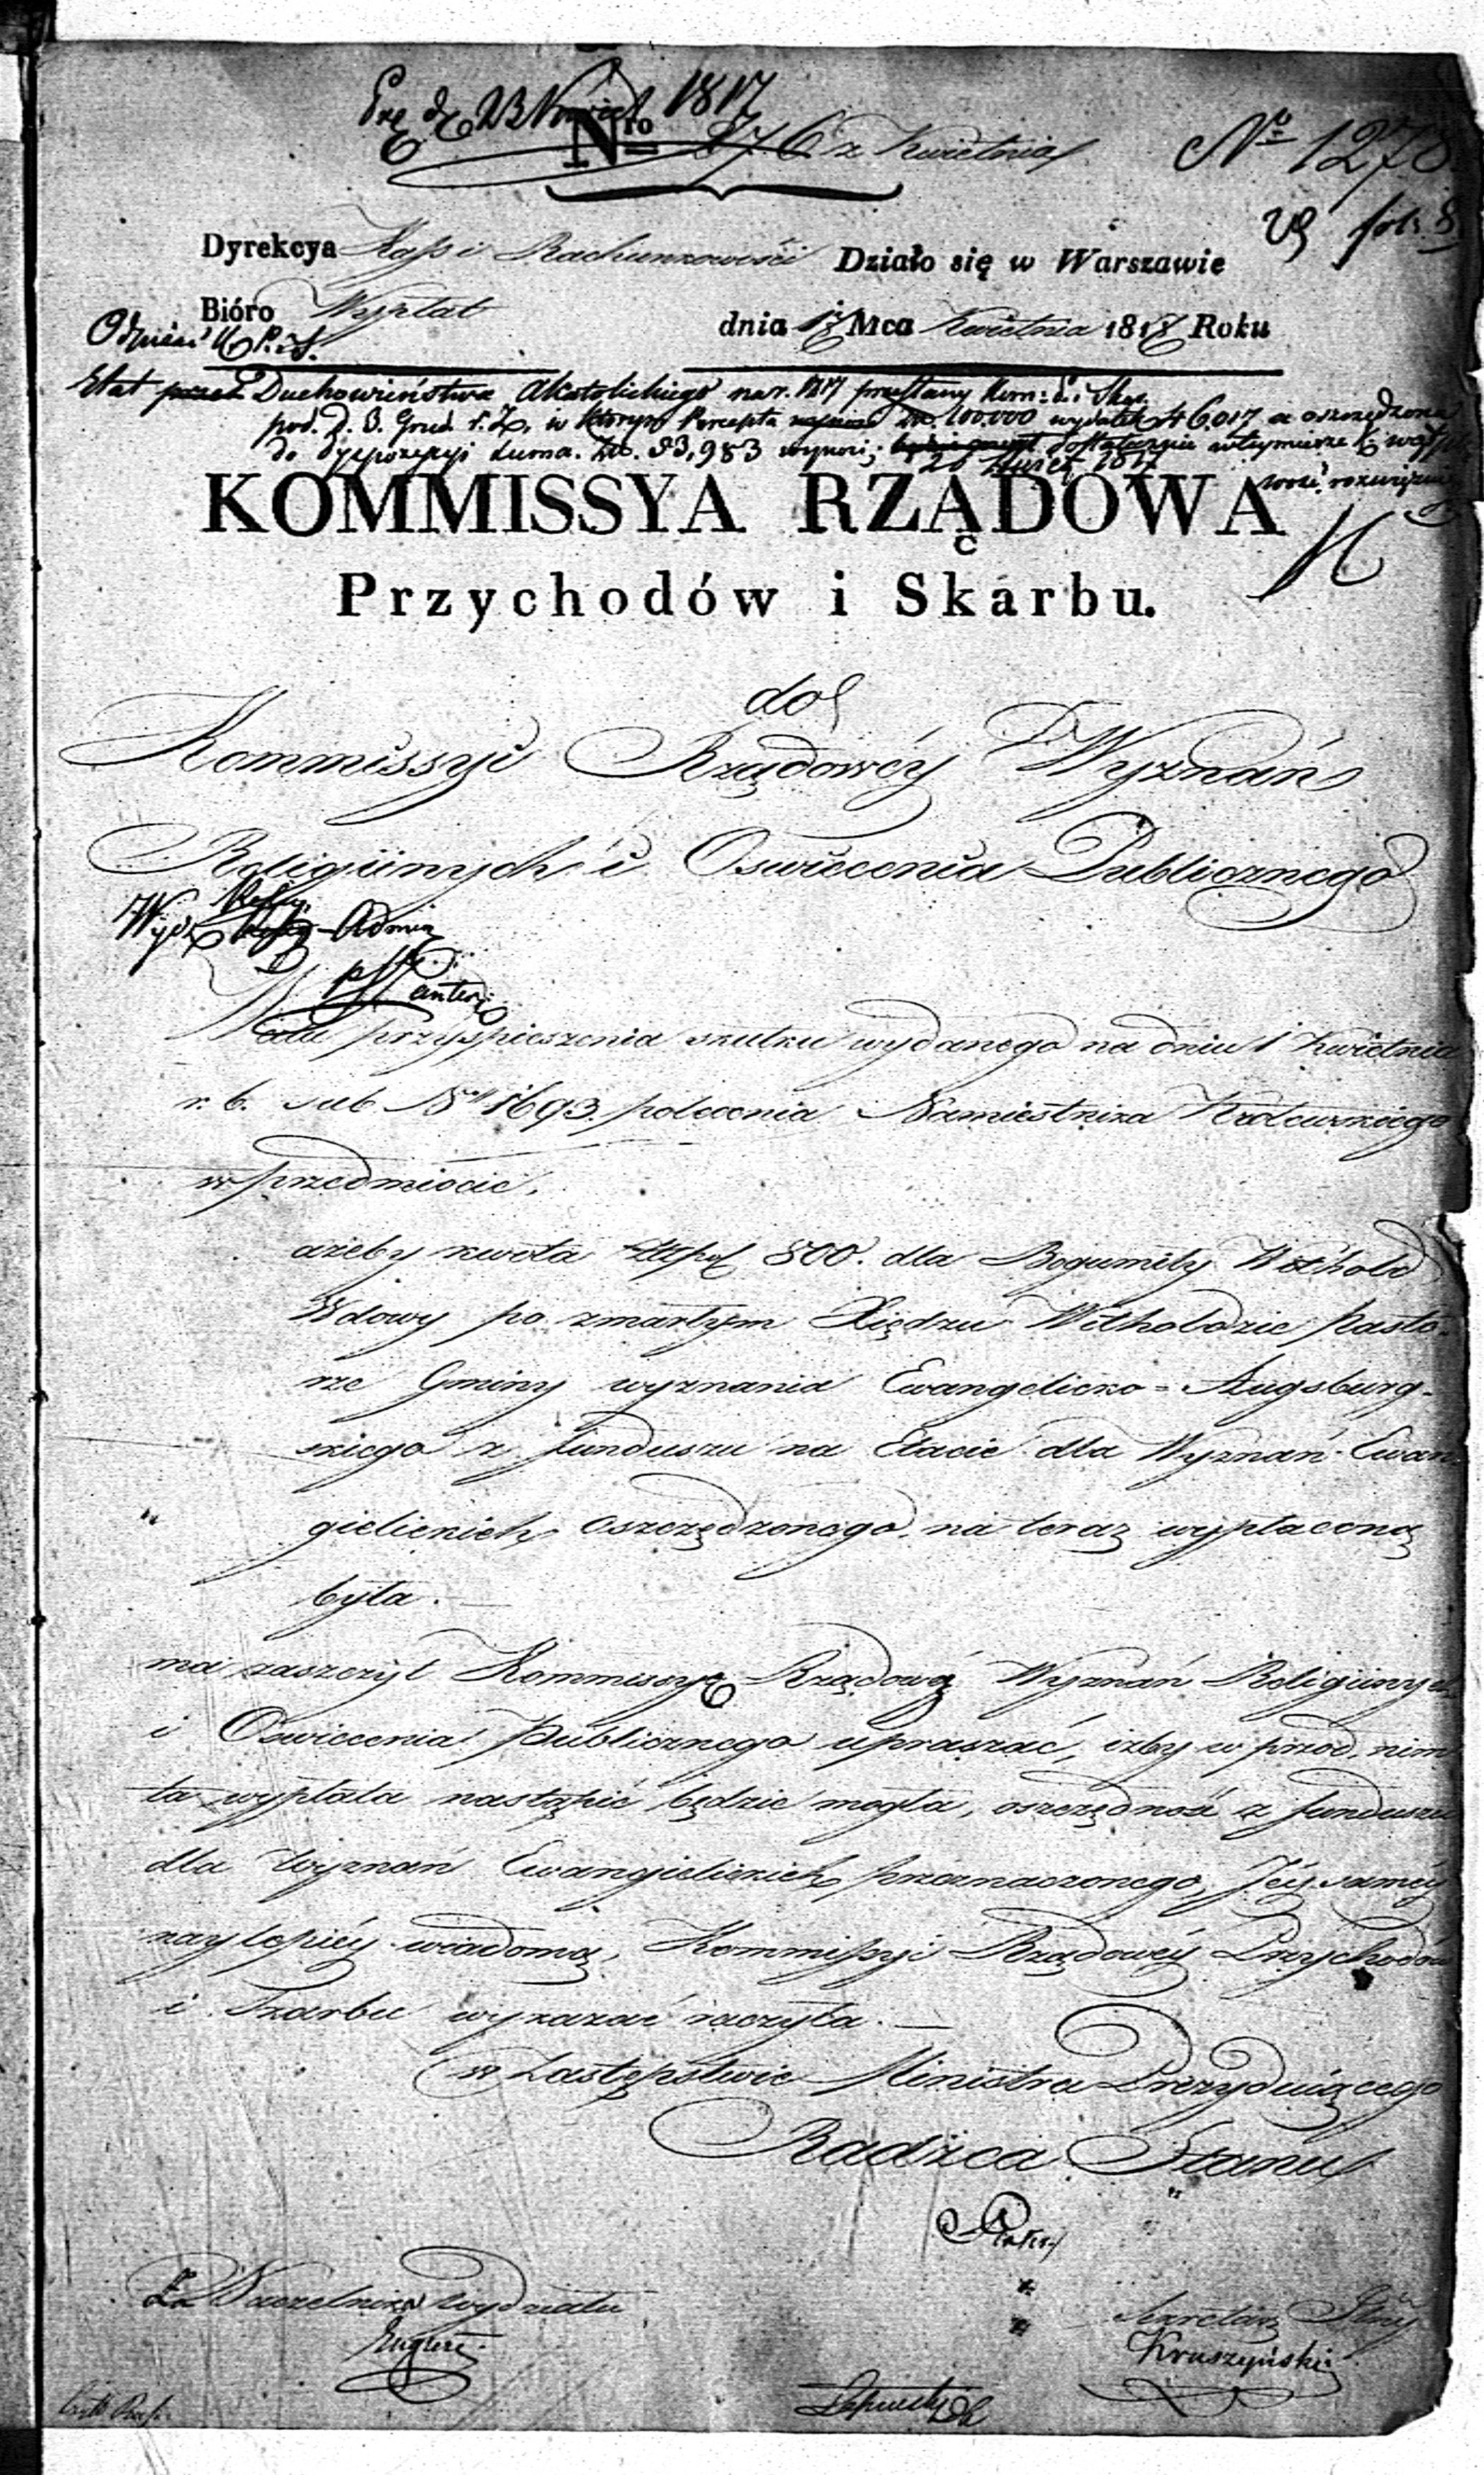 1817
Nro 876 z Kwietnia
No 1270
Dyrekcya Kass i Rachunkowości Działo się w Warszawie
Bióro Wypłat
dnia Mca Kwietnia 1817 Roku
Odpisać
Etat Duchowieństwa Akatolickiego na r. 1817 przesłany Kom: i Skar.
w którym Percepta 100.000 wydatek 46,017 a oszczędzona
do dyspozycyi summa 53,983 wynosi
1817
KOMMISSYA RZĄDOWA
Przychodów i Skarbu.
do
Kommissyi Rządowéy Wyznań
Religiinych i Oswiecenia Publicznego
Admin
W celu przyspieszenia skutku wydanego na dniu 1 Kwietnia
r. b. sub No 1693. polecenia Namiestnika Królewskiego
w przedmiocie,
ażeby kwota Złpol 800. dla Bogumiły Withold
Wdowy po zmarłym Xiędzu Witholdzie Pasto-
rze Gminy wyznania Ewangelicko=Augsburg-
skiego z funduszu na Etacie dla Wyznań Ewan-
gielickich oszczędzonego, na teraz wypłaconą
była. —
ma zaszczyt Kommissyą Rządową Wyznań Religiinych
i Oswiecenia Publicznego upraszać, iżby w przód, nim
ta wypłata nastąpić będzie mogła, oszczędność z funduszu
dla Wyznań Ewangielickich przeznaczonego, Jéy saméy
naylepiéy wiadomą, Kommissyi Rządowéy Przychodów
i Skarbu wykazać raczyła. —
w Zastępstwie Ministra Prezyduiącego
Radzca Stanu
Za Naczelnika Wydziału
Sekretarz
Kruszyński